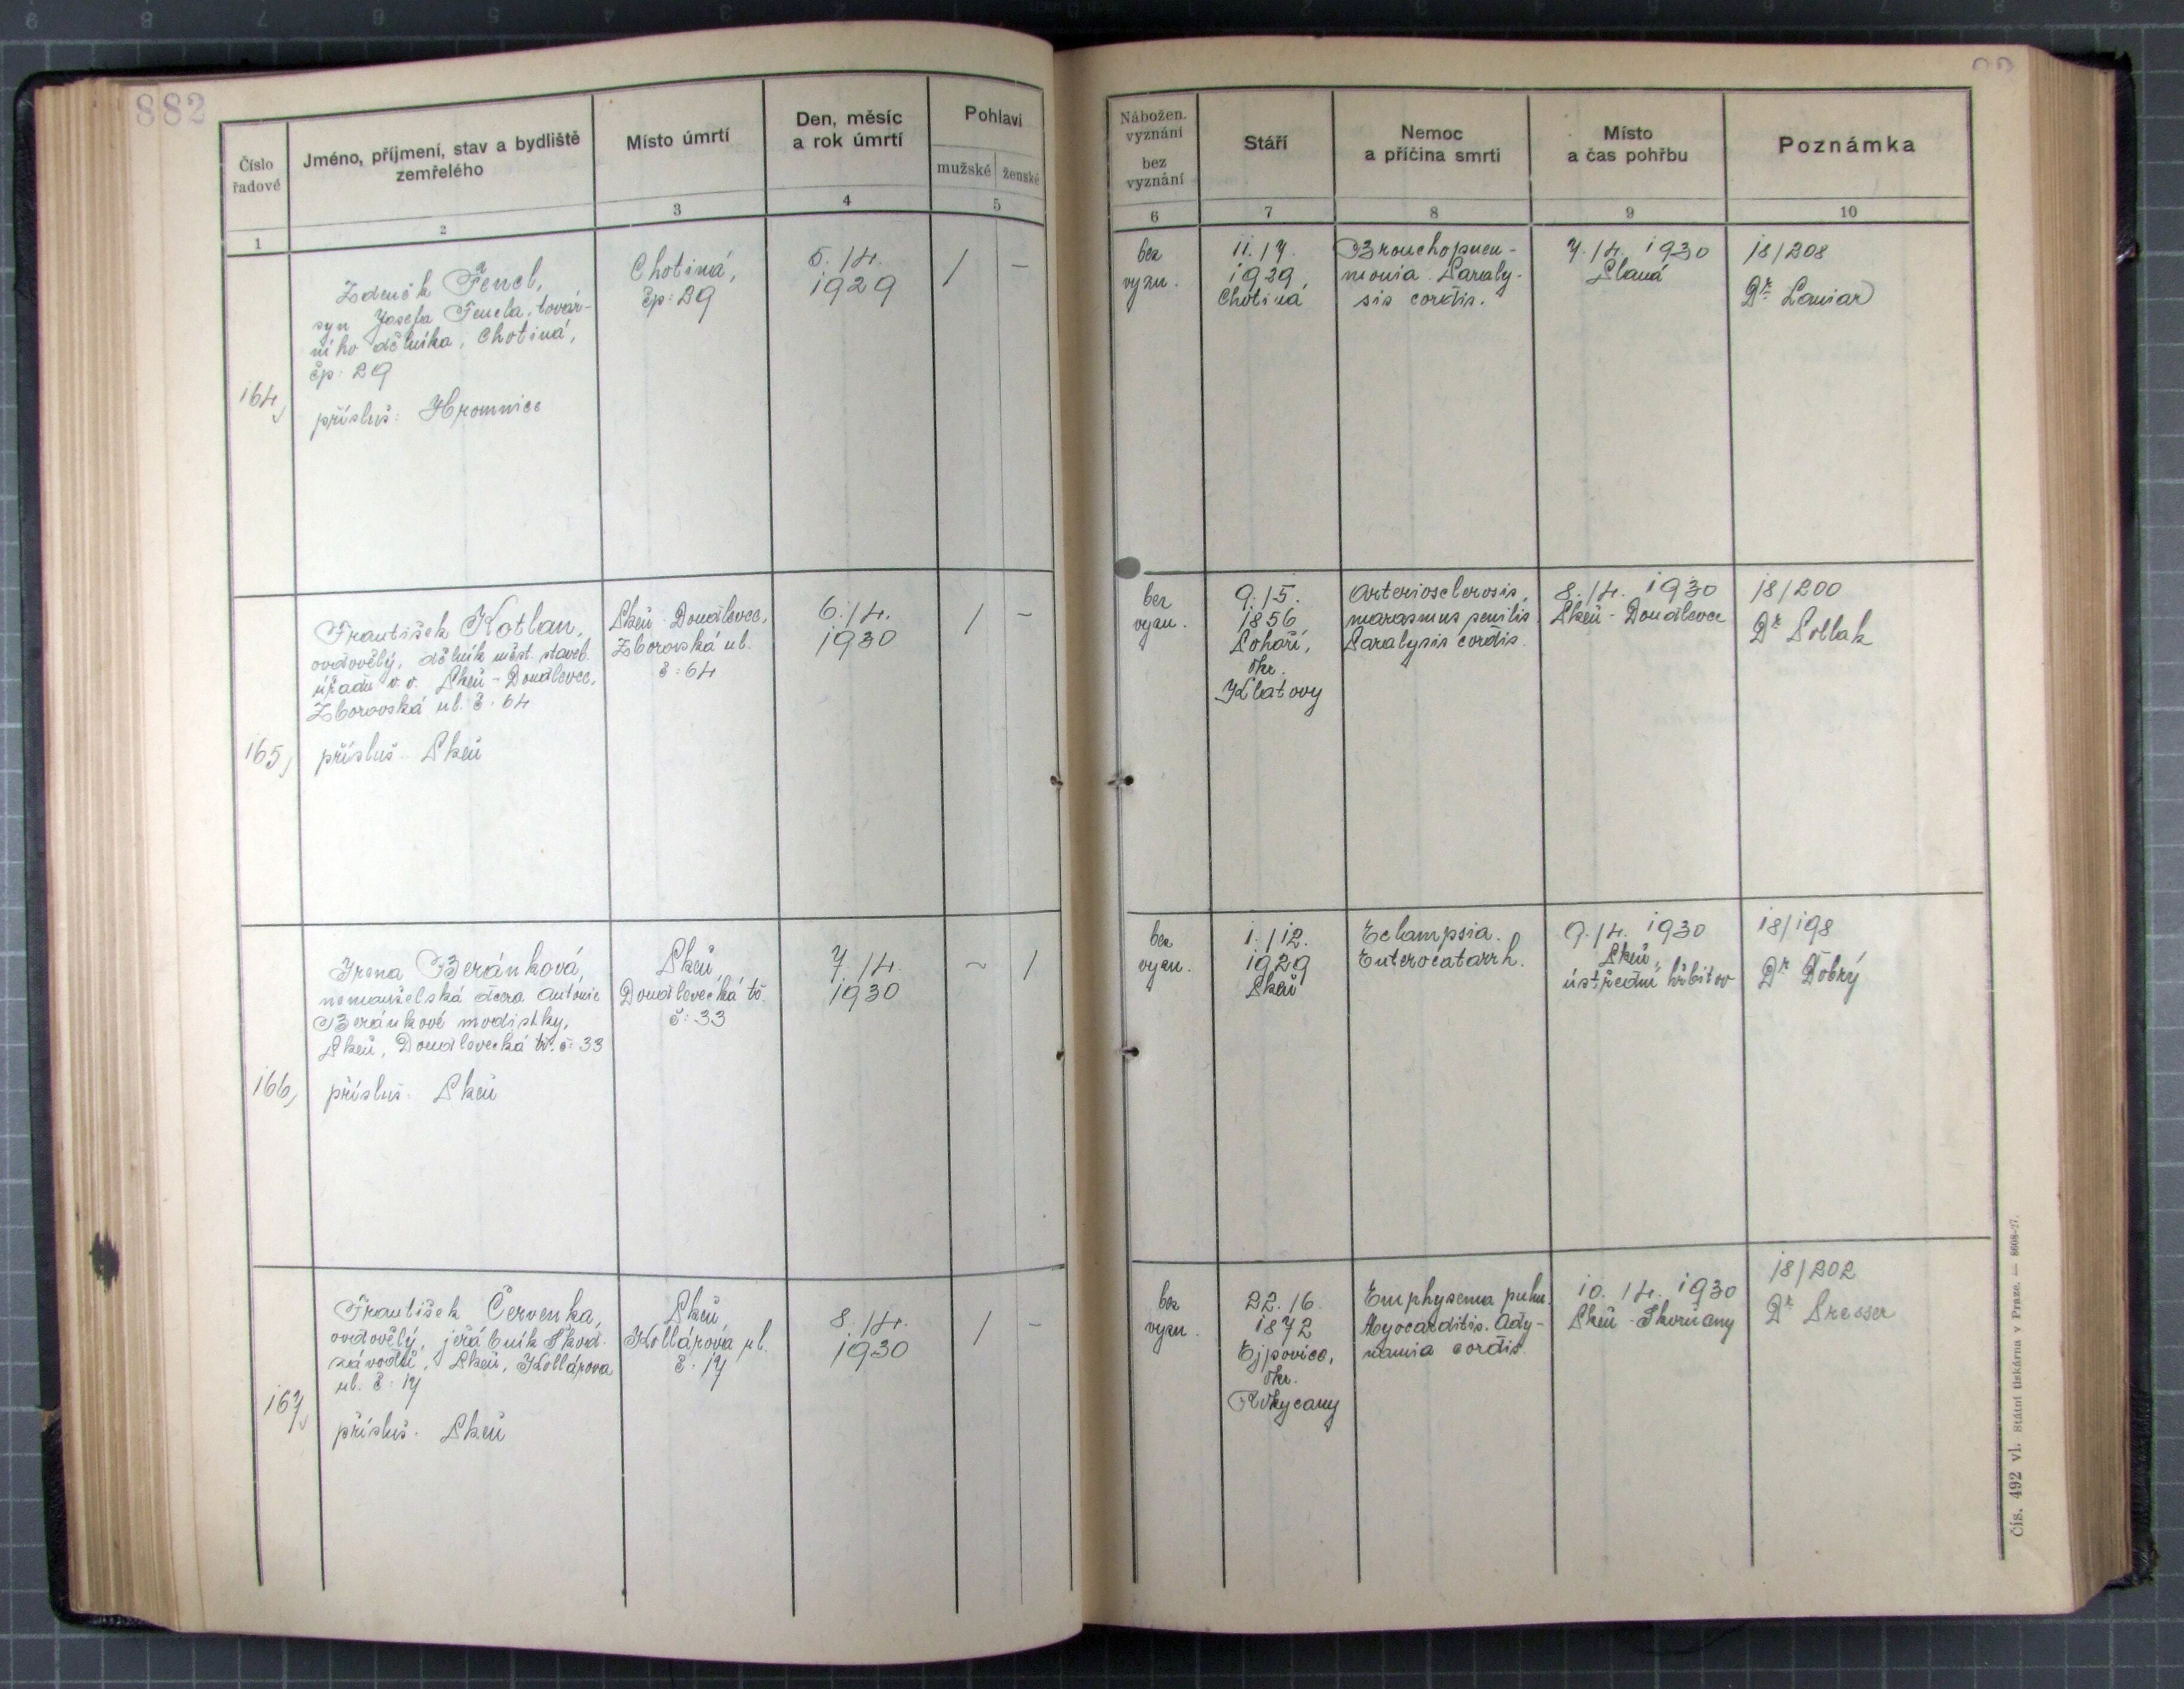 882
Číslo
řadové
Jméno, příjmení, stav a bydliště
zemřelého
Místo úmrtí
Den, měsíc
a rok úmrtí
Pohlaví
mužské
ženské
1
2
3
4
5
Nábožen.
vyznání
bez
vyznání
Stáří
Nemoc
a příčina smrti
Místo
a čas pohřbu
Poznámka
6
7
8
9
10
164,
Zdeněk Fencl,
syn Josefa Fencla, továr-
ního dělníka, Chotiná,
čp: 29
přísluš: Hromnice
Chotiná,
čp: 29
5./4.
1929
/
-
bez
vyzn.
11./7.
1929
Chotiná
Bronchopneu-
monia. Paraly-
sis cordis.
7./4. 1930
Planá
18/208
Dr Laniar
165,
František Kotlan,
ovdovělý, dělník měst. staveb.
úřadu v. v. Plzeň-Doudlevce,
Zborovská ul. č. 64
přísluš. Plzeň
Plzeň-Doudlevce,
Zborovská ul.
č: 64
6./4.
1930
/
-
bez
vyzn.
9./5.
1856
Pohoří,
okr.
Klatovy
Arteriosclerosis,
marasmus senilis
Paralysis cordis.
8./4. 1930
Plzeň-Doudlevce
18/200
Dr Pollak
166,
Irena Beránková,
nemanželská dcera Antonie
Beránkové modistky,
Plzeň, Doudlevecká tř. č: 33
přísluš: Plzeň
Plzeň,
Doudlevecká tř.
č: 33
7./4
1930
~
/
bez
vyzn.
1./12.
1929
Plzeň
Eclampsia.
Enterocatarrh.
9./4. 1930
Plzeň,
ústřední hřbitov
18/198
Dr Dobrý
167,
František Červenka,
ovdovělý, jeřábník Škod.
závodů, Plzeň, Kollárova
ul. č: 17
přísluš. Plzeň
Plzeň,
Kollárova ul.
č: 17
8./4.
1930
/
-
bez
vyzn.
22./6.
1872
Ejpovice,
okr.
Rokycany
Emphysema pulm.
Myocarditis. Ady-
namia cordis.
10./4. 1930
Plzeň-Skvrňany
18/202
Dr Presser
Čís. 492 vl. Státní tiskárna v Praze. — 8608-27.